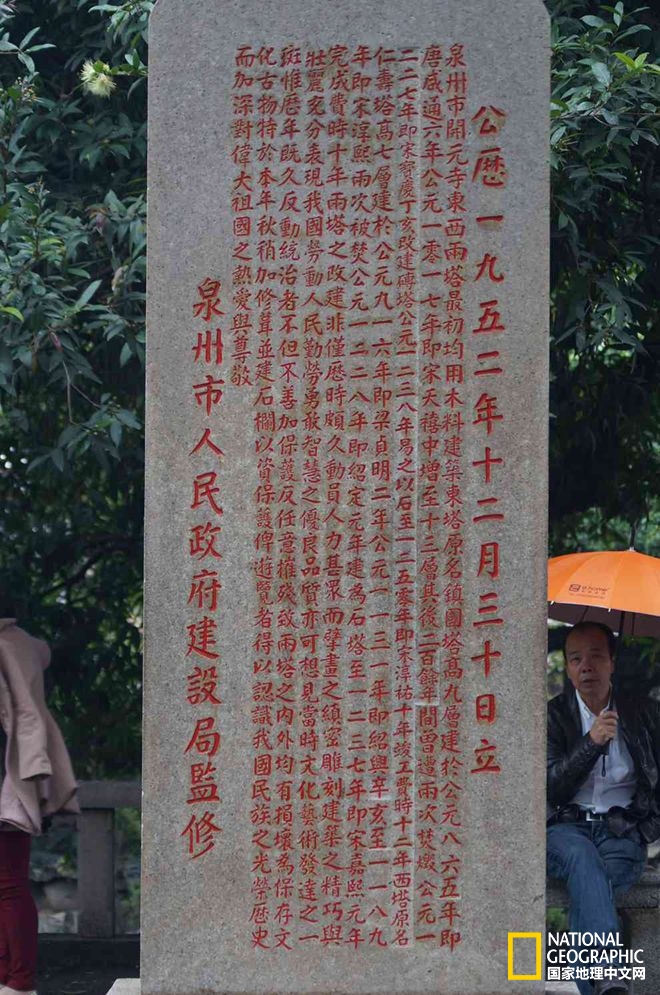 公歷一九五二年十二月三十日立
泉州市開元寺東西兩塔最初均用木料建築東塔原名鎮國塔高九層建於公元八六五年即
唐咸通六年公元一零一七年即宋天禧中增至十三層其後二百餘年間曾遭兩次焚燬公元一
二二七年即宋寶慶丁亥改建磚塔公元一二三八年易之以石至一二五零年即宋淳祐十年竣工費時十二年西塔原名
仁壽塔高七層建於公元九一六年即梁貞明二年公元一一三一年即紹興辛亥至一一八九
年即宋淳熙兩次被焚公元一二二八年即紹定元年建為石塔至一二三七年即宋嘉熙元年
完成費時十年兩塔之改建非僅歷時頗久動員人力甚眾而擘畫之縝密雕刻建築之精巧與
壯麗充分表現我國勞動人民勤勞勇敢智慧之優良品質亦可想見當時文化藝術發達之一
斑惟歷年既久反動統治者不但不善加保護反任意摧殘致兩塔之內外均有損壞為保存文
化古物特於本年秋稍加修葺並建石欄以資保護俾遊覽者得以認識我國民族之光榮歷史
而加深對偉大祖國之熱愛與尊敬
泉州市人民政府建設局監修
NATIONAL
GEOGRAPHIC
国家地理中文网